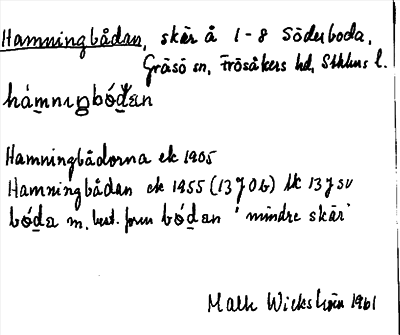 Hamningbådan, skär å 1-8 Söderboda,
Gräsö sn, Frösåkers hd, Sthlms l.
hámnıŋbóđan
Hamningbådorna ek 1905
Hamningbådan ek 1955 (13 J 0b) tk 13 J SV
bóđa m. best. form bóđan 'mindre skär'
Wickström 1961